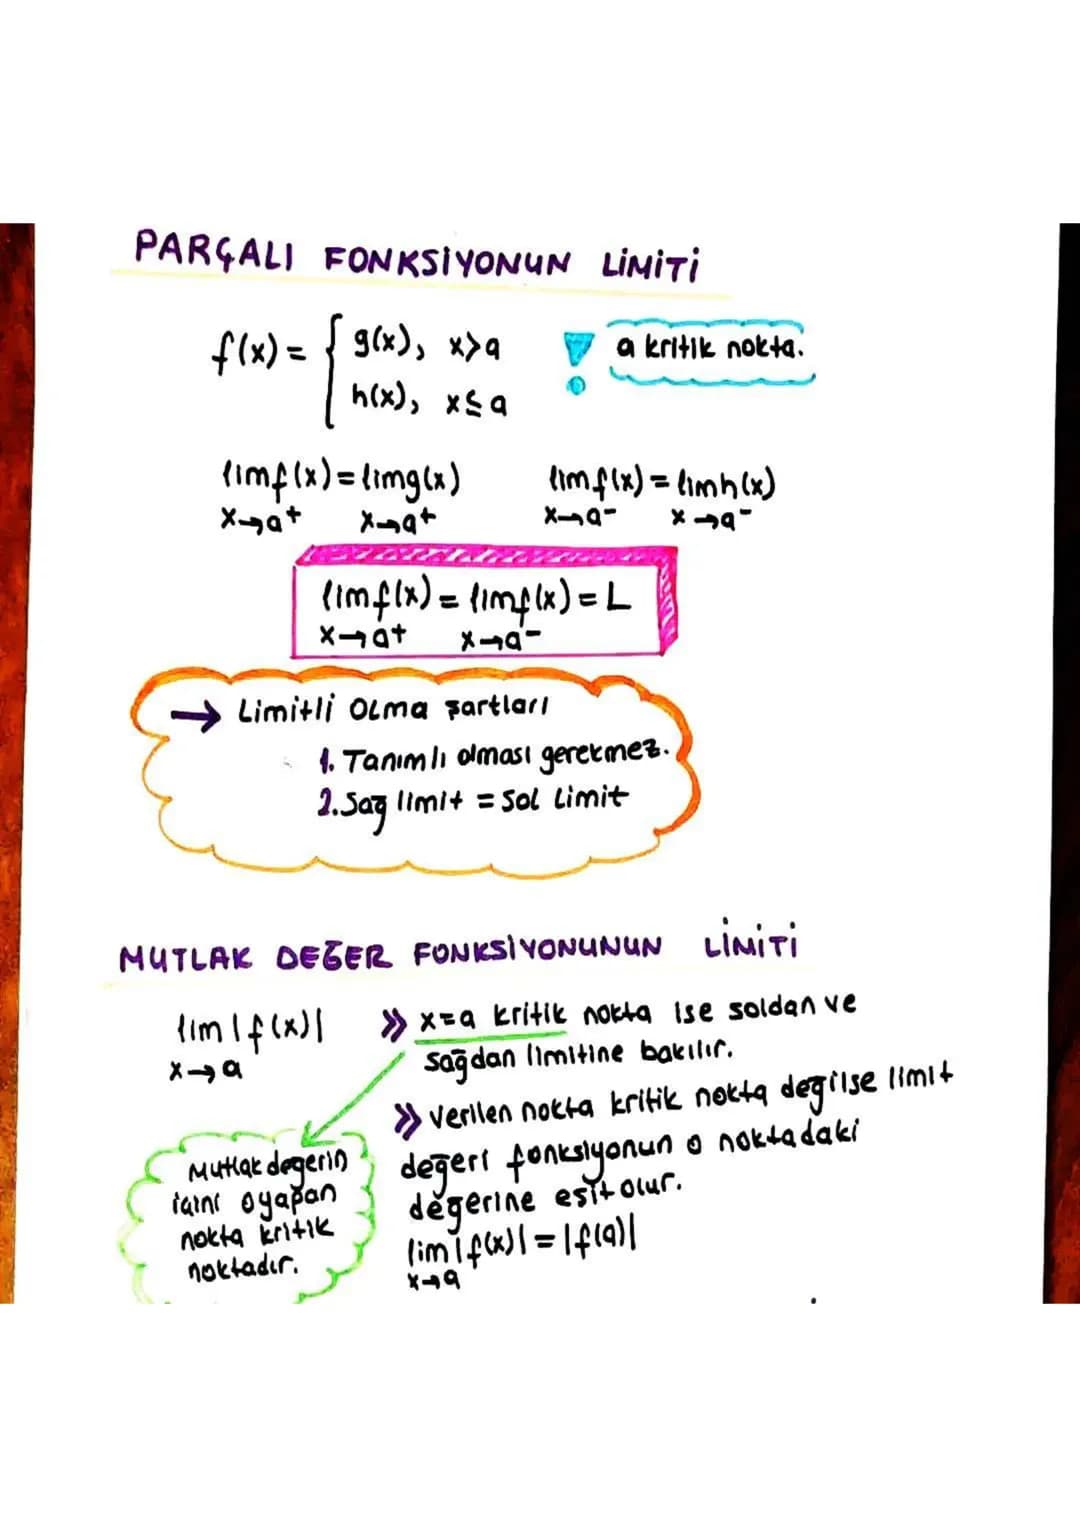 PARÇALI FONKSİYONUN LİMİTİ
f(x) = { g(x), x>a
h(x), x≤a
! a kritik nokta.
lim f(x) = lim g(x) lim f(x) = lim h(x)
x→a⁺ x→a⁺ x→a⁻ x→a⁻
lim f(x) = lim f(x) = L
x→a⁺ x→a⁻
→ Limitli Olma şartları
1. Tanımlı olması gerekmez.
2. Sağ limit = Sol Limit
MUTLAK DEĞER FONKSİYONUNUN LİMİTİ
lim |f(x)|
x→a
» x=a kritik nokta ise soldan ve
sağdan limitine bakılır.
» Verilen nokta kritik nokta değilse limit
değeri fonksiyonun o noktadaki
değerine eşit olur.
lim |f(x)| = |f(a)|
x→a
Mutlak değerin
içini 0 yapan
nokta kritik
noktadır.